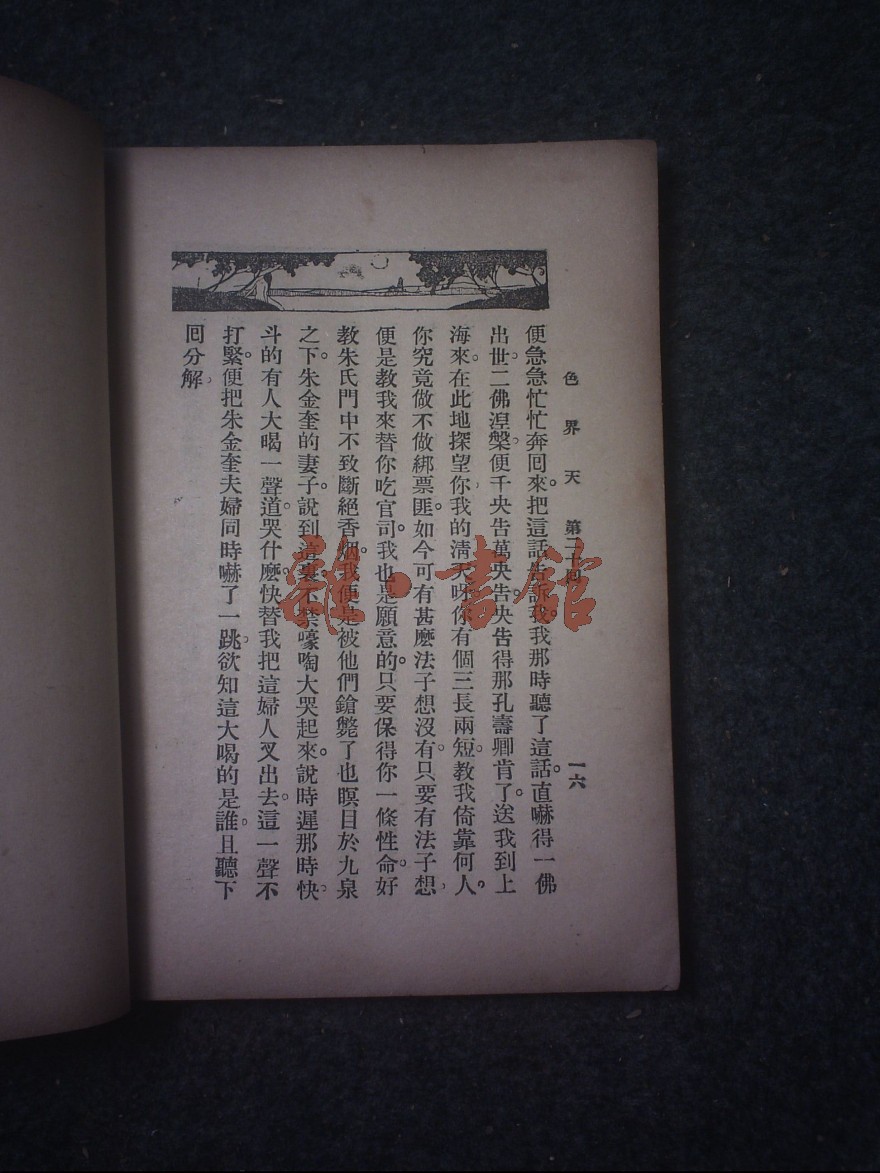 色界天 第二十回 一六
便急急忙忙奔囘來。把這話告訴我。我那時聽了這話。直嚇得一佛
出世、二佛湼槃、便千央告萬央告。央告得那孔壽卿肯了。送我到上
海來。在此地探望你、我的淸天呀你有個三長兩短。教我倚靠何人。
你究竟做不做綁票匪。如今可有甚麽法子想沒有。只要有法子想、
便是教我來替你吃官司。我也是願意的。只要保得你一條性命。好
教朱氏門中不致斷絕香烟。我便是被他們鎗斃了也瞑目於九泉
之下。朱金奎的妻子。說到這裏。不禁嚎啕大哭起來。說時遲那時快、
斗的有人大喝一聲道。哭什麽快替我把這婦人叉出去。這一聲不
打緊。便把朱金奎夫婦同時嚇了一跳。欲知這大喝的是誰。且聽下
囘分解、
雜·書館